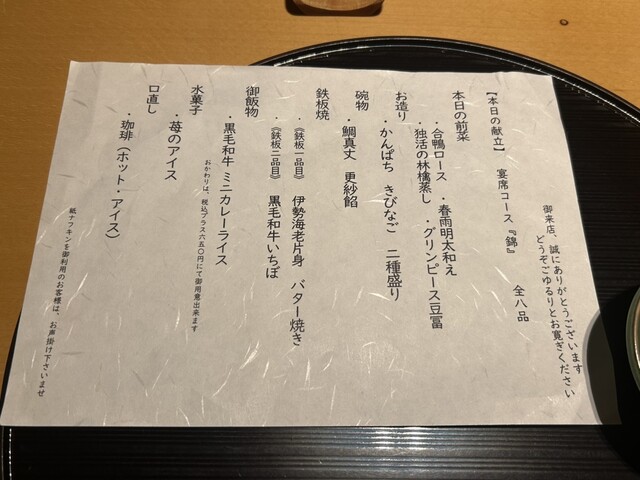 御来店、誠にありがとうございます
どうぞごゆるりとお寛ぎください
【本日の献立】　宴席コース『錦』　全八品
本日の前菜
・合鴨ロース　・春雨明太和え
・独活の林檎蒸し　・グリンピース豆富
お造り
・かんぱち　きびなご　二種盛り
碗物
・鯛真丈　更紗餡
鉄板焼
・《鉄板一品目》　伊勢海老片身　バター焼き
・《鉄板二品目》　黒毛和牛いちぼ
御飯物
・黒毛和牛 ミニカレーライス
おかわりは、税込プラス六五〇円にて御用意出来ます
水菓子
・苺のアイス
口直し
・珈琲（ホット・アイス）
紙ナフキンを御利用のお客様は、お声掛け下さいませ